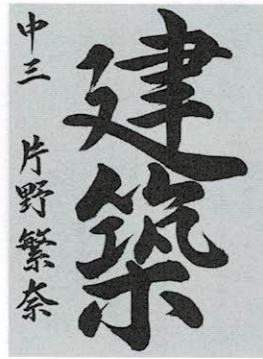 建築
中三 片野繁奈